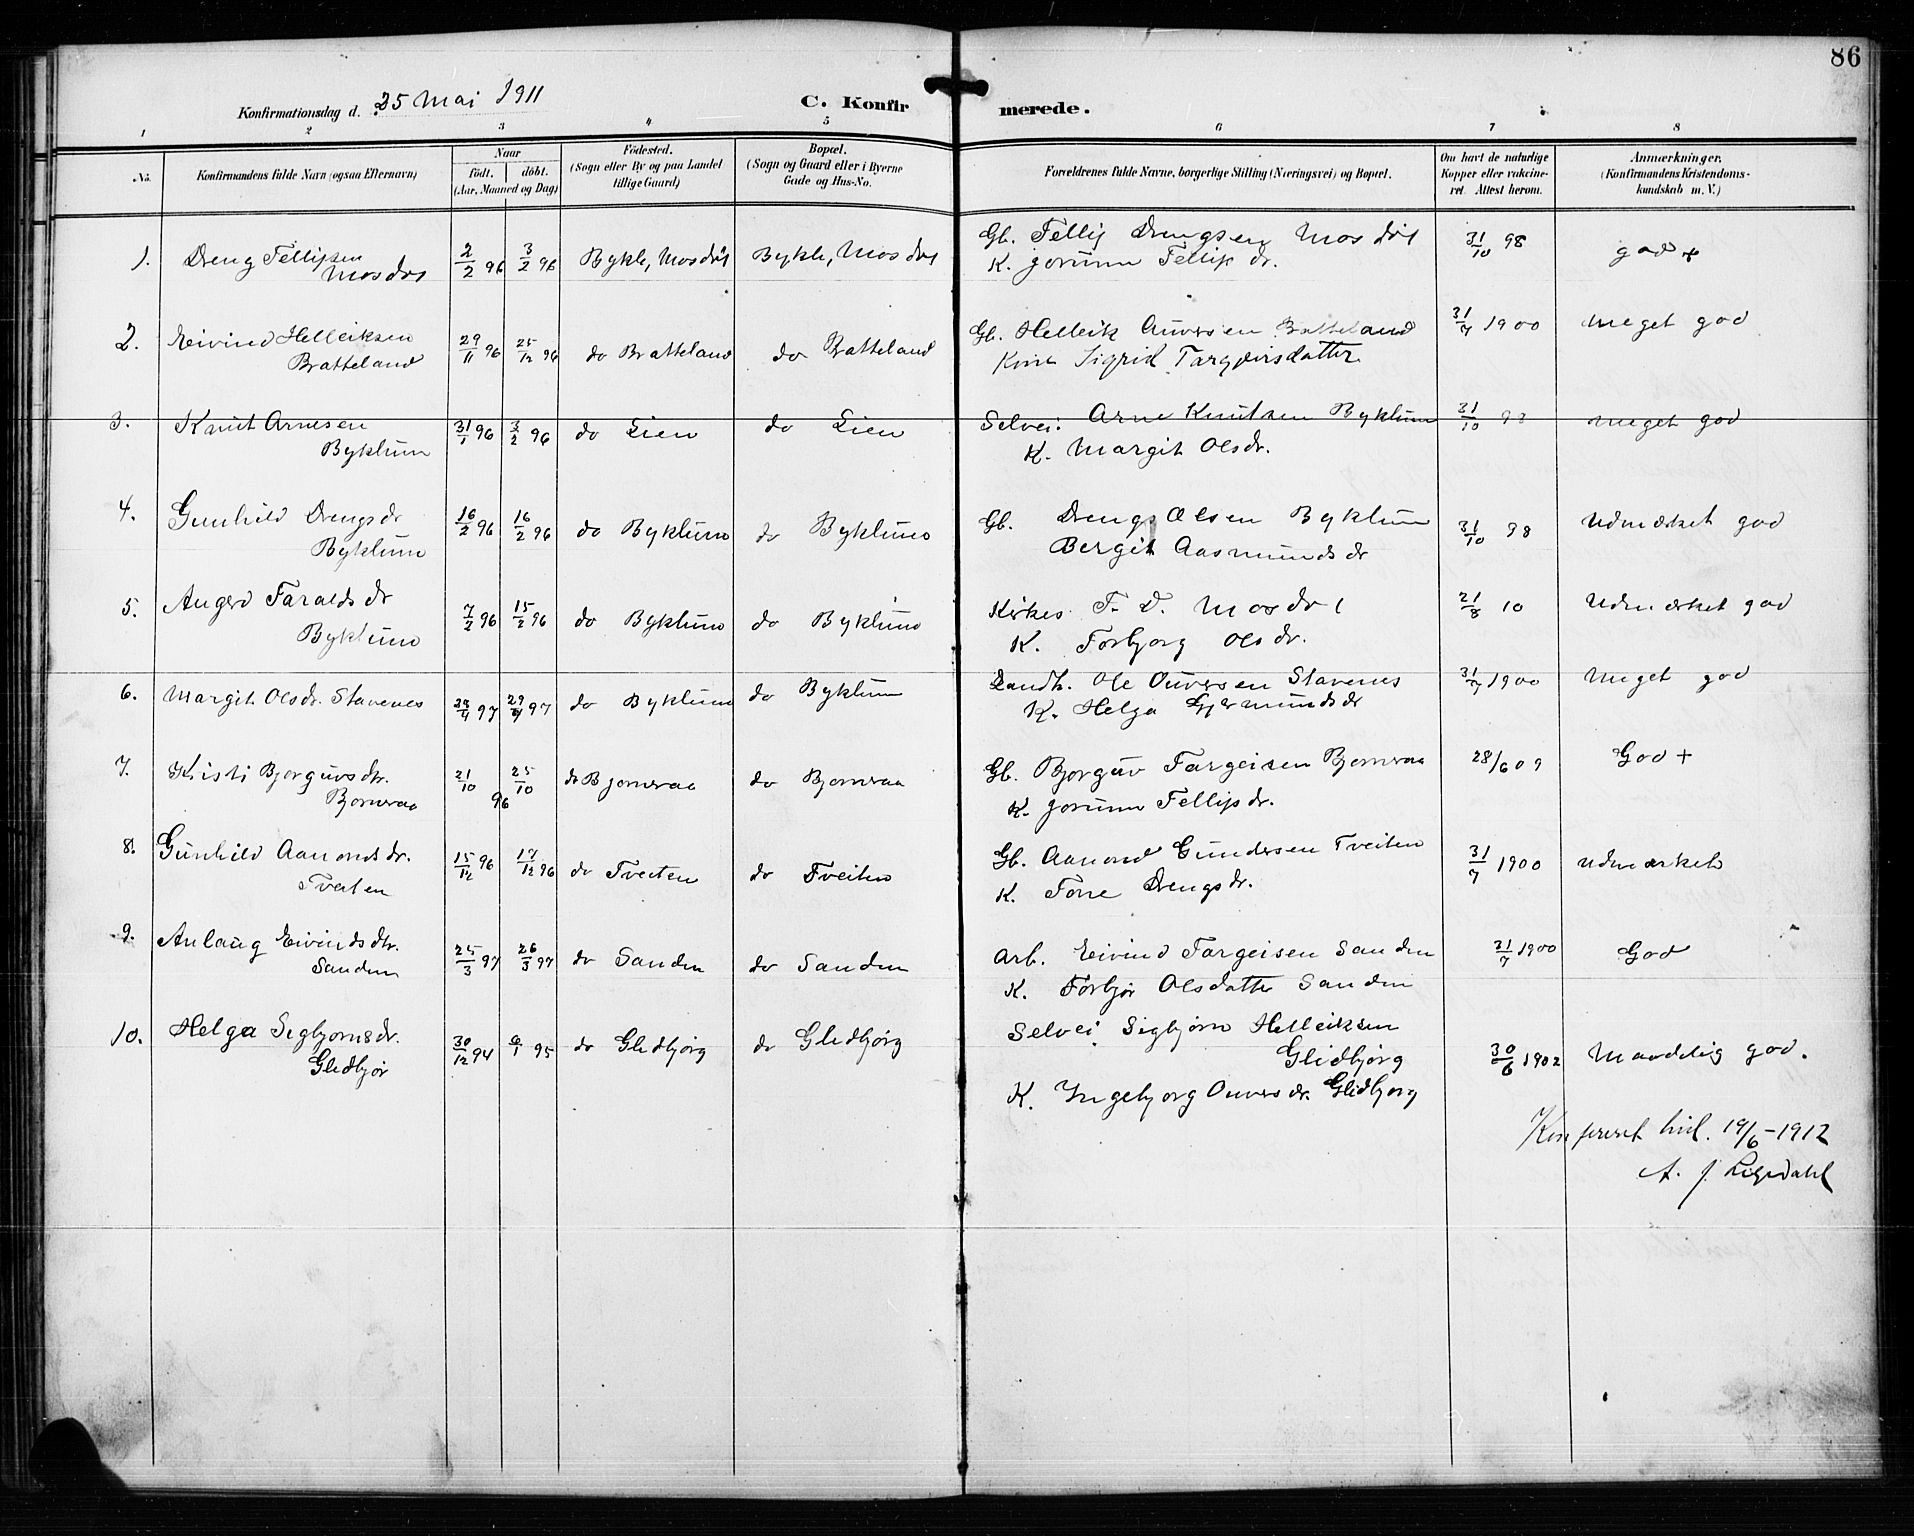 86
Konfirmationsdag d. 25 Mai 1911
C. Konfirmerede.
1 2 3 4 5 6 7 8
No.
Konfirmandens fulde Navn (ogsaa Efternavn)
Naar
födt. döbt.
(Aar, Maaned og Dag)
Födested.
(Sogn eller By og paa Landet
tillige Gaard)
Bopæl.
(Sogn og Gaard eller i Byerne
Gade og Hus-No.
Forældrenes fulde Navne, borgerlige Stilling (Næringsvei) og Bopæl.
Om havt de naturlige
Kopper eller vakcine-
ret. Attest herom.
Anmærkninger.
(Konfirmandens Kristendoms-
kundskab m. V.)
1. Dreng Tellefsen 2/2 96 3/2 96 Bykle, Mosdøl Bykle, Mosdøl Gb. Tellef Drengsen Mosdøl 31/10 98 god +
Mosdøl K. Jorunn Tellefsdr.
2. Eivind Helleiksen 29/11 96 25/12 96 do Bratteland do Bratteland Gb. Helleik Auversen Bratteland 31/7 1900 meget god
Bratteland Kone Sigrid Targjeirsdatter
3. Knut Arnesen 31/1 96 3/2 96 do Lien do Lien Selvei. Arne Knutsen Byklum 31/10 98 meget god
Byklum K. Margit Olsdr.
4. Gunhild Drengsdr 16/2 96 16/2 96 do Byklum do Byklum Gb. Dreng Olsen Byklum 31/10 98 Udmærket god
Byklum Bergit Aasmundsdr
5. Angerd Taraldsdr 7/2 96 15/2 96 do Byklum do Byklum Kirkes. T. D. Mosdøl 21/8 10 Udmærket god
Byklum K. Torbjorg Olsdr.
6. Margit Olsdr. Stavenes 97 97 do Byklum do Byklum Landh. Ole Ouversen Stavenes 31/7 1900 Meget god
K. Helga Gjermundsdr
7. Kristi Bjorguvsdtr. 21/10 25/10 do Bjornraa do Bjornraa Gb. Bjorguv Targeisen Bjornraa 28/6 09 God +
Bjornraa 96 K. Jorunn Tellefsdr.
8. Gunhild Aanondsdr. 15/12 96 17/12 96 do Tveiten do Tveiten Gb. Aanond Gundersen Tveiten 31/7 1900 udmærket
Tveiten K. Tone Drengsdr.
9. Anlaug Eivindsdtr. 25/3 97 26/3 97 do Sanden do Sanden Arb. Eivind Targeisen Sanden 31/7 1900 God
Sanden K. Torbjør Olsdatter Sanden
10. Helga Sigbjornsdr. 30/12 94 6/1 95 do Glidbjørg do Glidbjørg Selvei. Sigbjørn Helleiksen
Glidbjør Glidbjørg 30/6 1902 Maadelig god.
K. Ingebjorg Ouversdr. Glidbjorg
Konfereret hid. 19/6-1912
A. J. Liestdahl